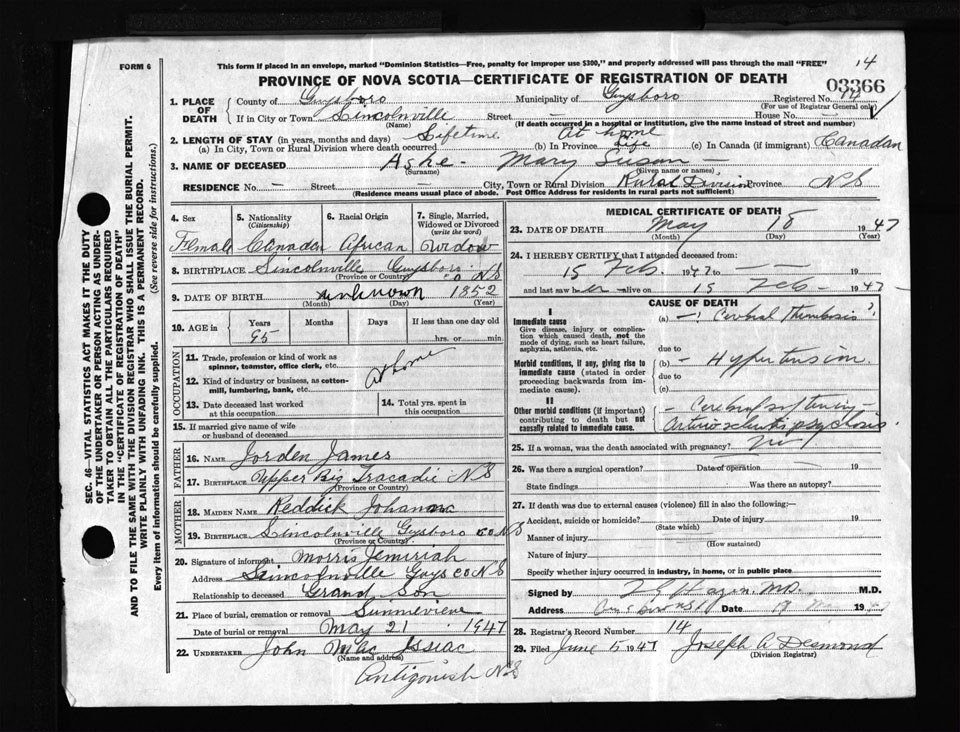 FORM 6
This form if placed in an envelope, marked "Dominion Statistics—Free, penalty for improper use $300," and properly addressed will pass through the mail "FREE"
14
PROVINCE OF NOVA SCOTIA—CERTIFICATE OF REGISTRATION OF DEATH
03366
1. PLACE OF DEATH { County of Guysboro Municipality of Guysboro Registered No.
(For use of Registrar General only)
If in City or Town Lincolnville Street — House No. —
(Name) (If death occurred in a hospital or institution, give the name instead of street and number)
2. LENGTH OF STAY (in years, months and days) Lifetime At home
(a) In City, Town or Rural Division where death occurred (b) In Province Life (c) In Canada (if immigrant) Canadan
3. NAME OF DECEASED Ashe - Mary Susan —
(Surname) (Given name or names)
RESIDENCE No. — Street — City, Town or Rural Division Rural Division Province N S
(Residence means usual place of abode. Post Office Address for residents in rural parts not sufficient)
4. Sex 5. Nationality (Citizenship) 6. Racial Origin 7. Single, Married, Widowed or Divorced (write the word)
Female Canaden African Widow
8. BIRTHPLACE Lincolnville Guysboro co N S
(Province or Country)
9. DATE OF BIRTH unknown 1852
(Month) (Day) (Year)
10. AGE in { Years Months Days If less than one day old
95 hrs. or min.
OCCUPATION
11. Trade, profession or kind of work as spinner, teamster, office clerk, etc.
12. Kind of industry or business, as cotton-mill, lumbering, bank, etc.
at home
13. Date deceased last worked at this occupation 14. Total yrs. spent in this occupation
15. If married give name of wife or husband of deceased
FATHER
16. Name Jorden James
17. Birthplace Upper Big Tracadie N S
(Province or Country)
MOTHER
18. Maiden Name Reddick Johanna
19. Birthplace Lincolnville Guysboro co N S
(Province or Country)
20. Signature of informant Morris Jemiriah
Address Lincolnville Guys co N S
Relationship to deceased Grand Son
21. Place of burial, cremation or removal
Date of burial or removal May 21 1947
22. UNDERTAKER John Mac Issiac
(Name and address)
Antigonish N S
MEDICAL CERTIFICATE OF DEATH
23. DATE OF DEATH May 18 1947
(Month) (Day) (Year)
24. I HEREBY CERTIFY that I attended deceased from:
15 Feb. 1947 to — —
and last saw her alive on 15 Feb - 1947
CAUSE OF DEATH
I
Immediate cause
Give disease, injury or complication which caused death, not the mode of dying, such as heart failure, asphyxia, asthenia, etc.
(a) Cerebral Thrombosis
due to
Morbid conditions, if any, giving rise to immediate cause (stated in order proceeding backwards from immediate cause).
(b) - Hypertension
due to
(c)
II
Other morbid conditions (if important) contributing to death but not causally related to immediate cause.
- Cerebral softening -
Arteriosclerotic psychosis
25. If a woman, was the death associated with pregnancy?
26. Was there a surgical operation? — Date of operation — 19
State findings Was there an autopsy?
27. If death was due to external causes (violence) fill in also the following:—
Accident, suicide or homicide? Date of injury 19
(State which)
Manner of injury
(How sustained)
Nature of injury
Specify whether injury occurred in industry, in home, or in public place
Signed by M.D. M.D.
Address Date 19 19
28. Registrar's Record Number 14
29. Filed June 5 1947 Joseph A Desmond
(Division Registrar)
SEC. 46—VITAL STATISTICS ACT MAKES IT THE DUTY OF THE UNDERTAKER OR PERSON ACTING AS UNDERTAKER TO OBTAIN ALL THE PARTICULARS REQUIRED IN THE "CERTIFICATE OF REGISTRATION OF DEATH" AND TO FILE THE SAME WITH THE DIVISION REGISTRAR WHO SHALL ISSUE THE BURIAL PERMIT.
WRITE PLAINLY WITH UNFADING INK. THIS IS A PERMANENT RECORD.
Every item of information should be carefully supplied. (See reverse side for instructions.)